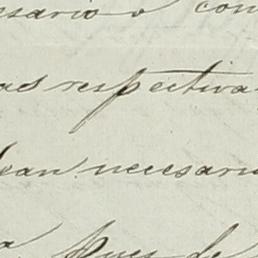 sario o con
as respectiva
sean necesari
a Pues de